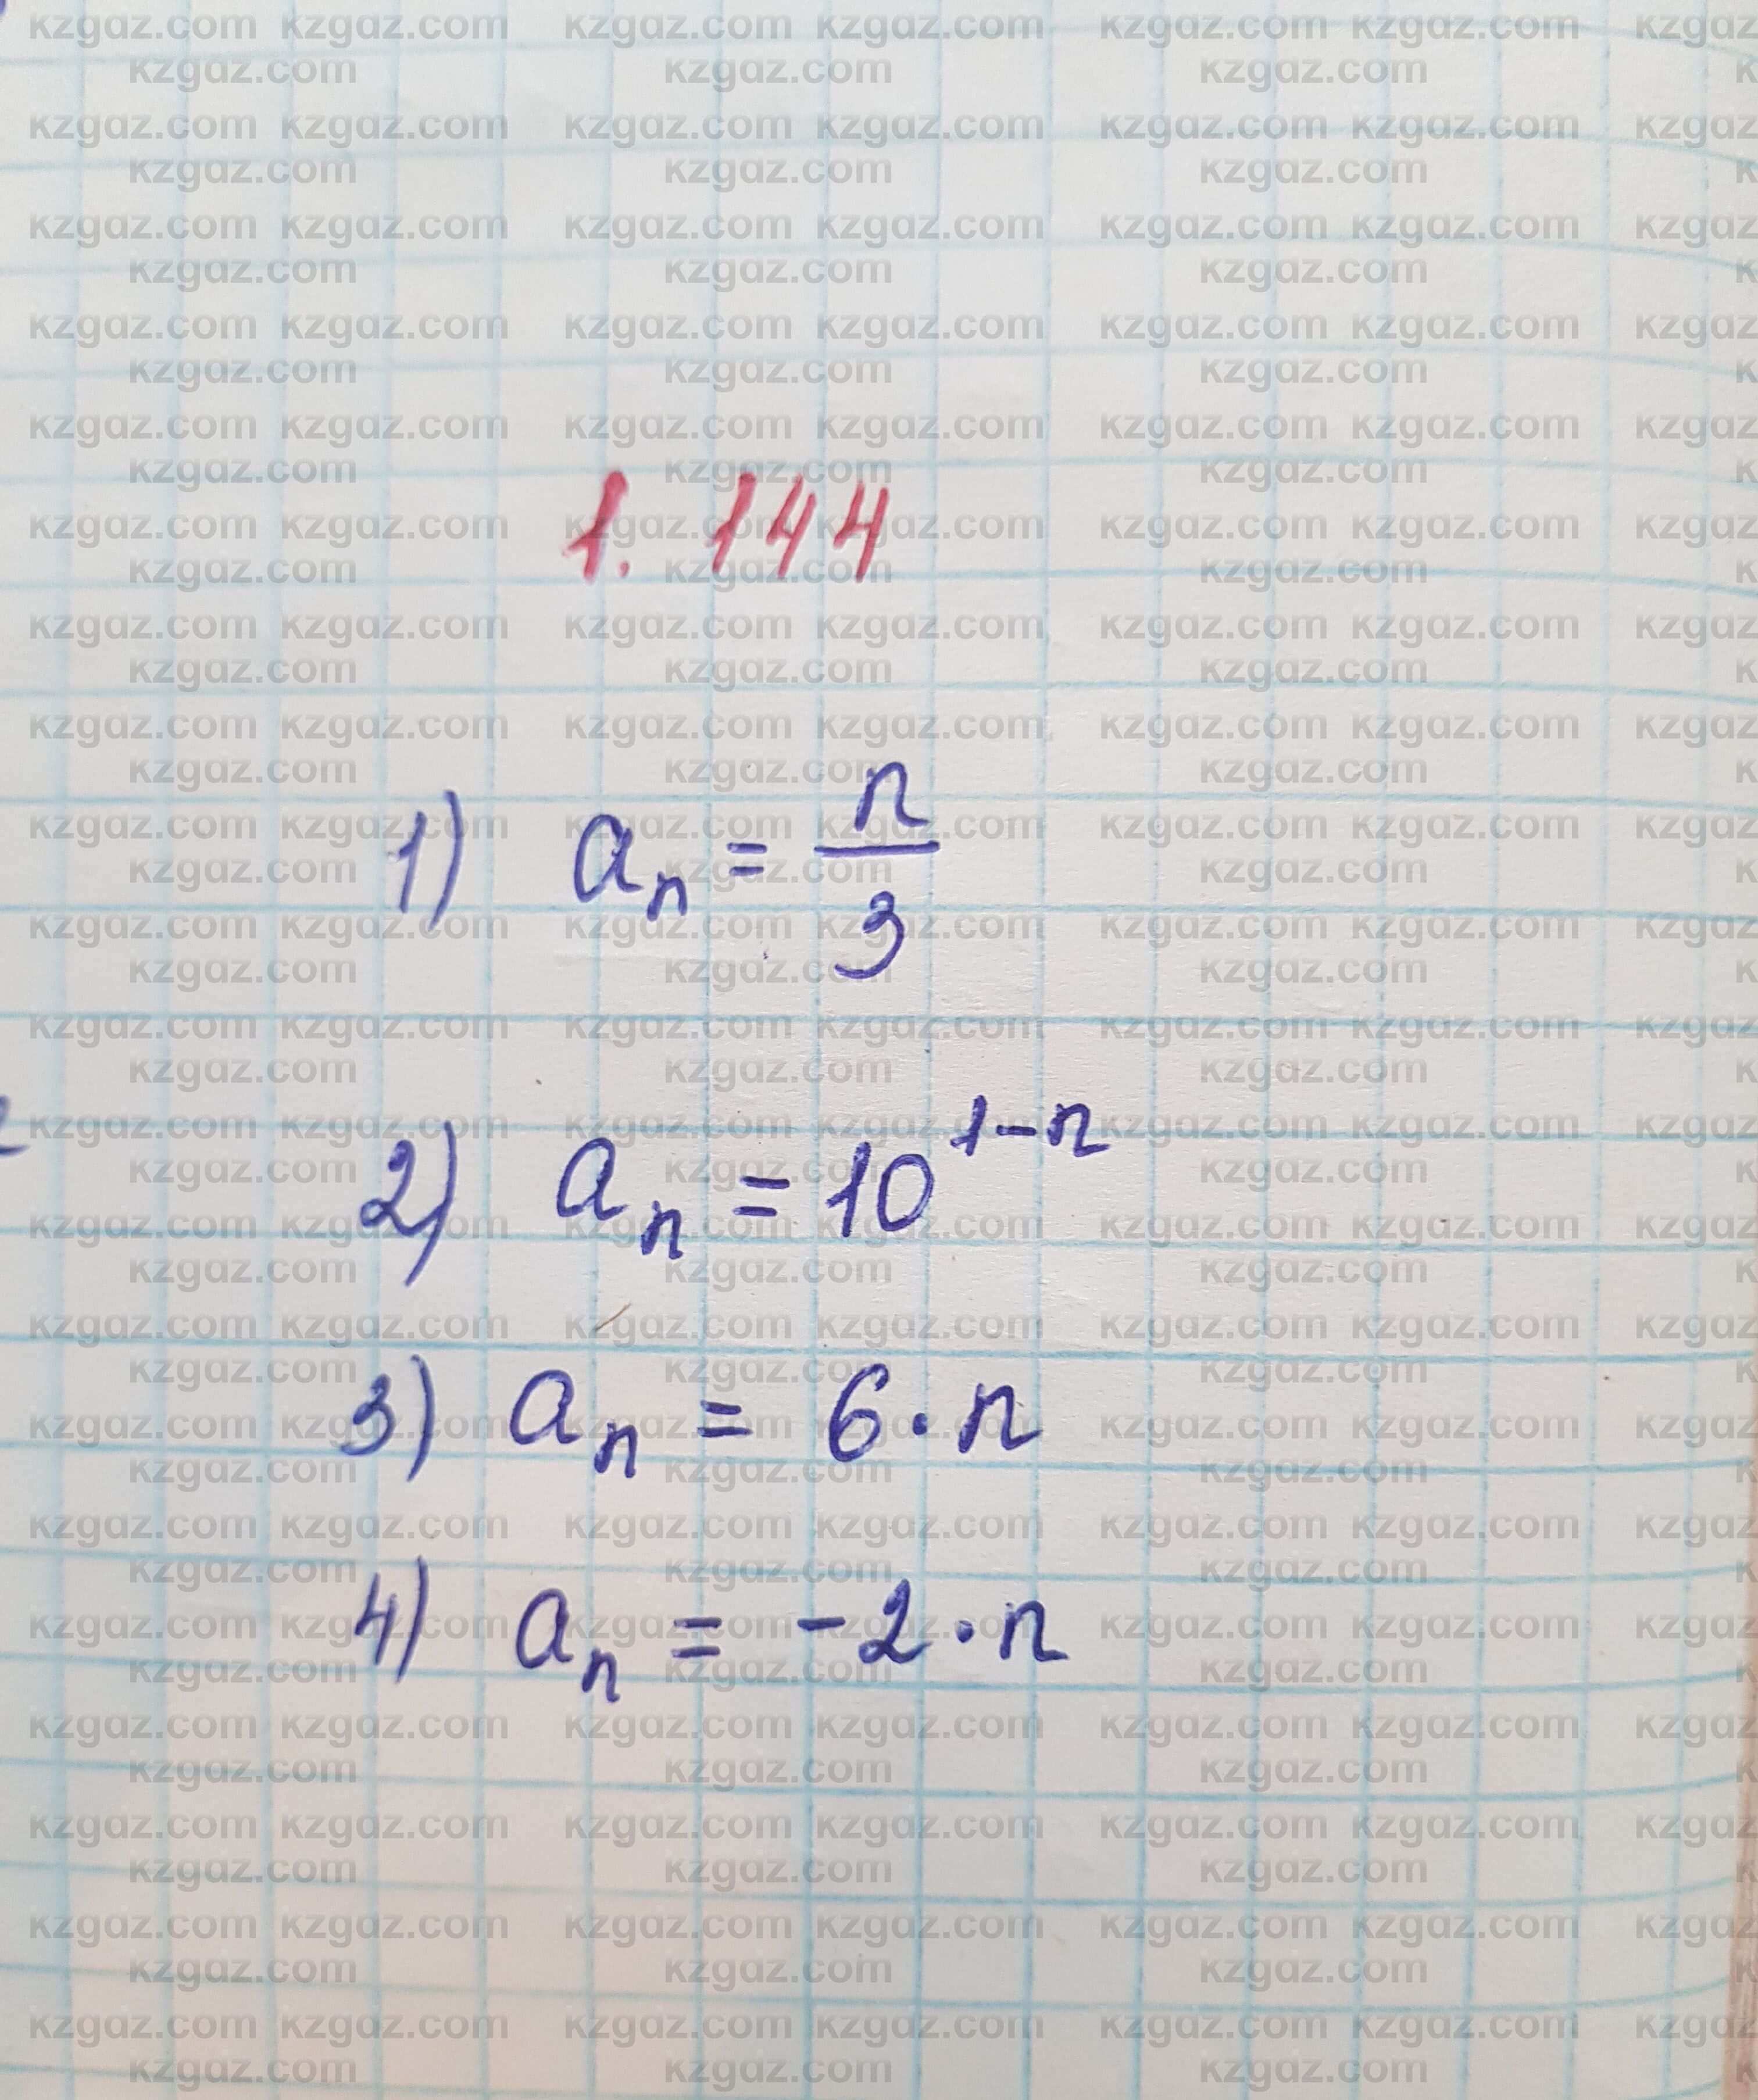 1. 144
1) aₙ = n/3
2) aₙ = 10¹⁻ⁿ
3) aₙ = 6·n
4) aₙ = -2·n
kzgaz.com